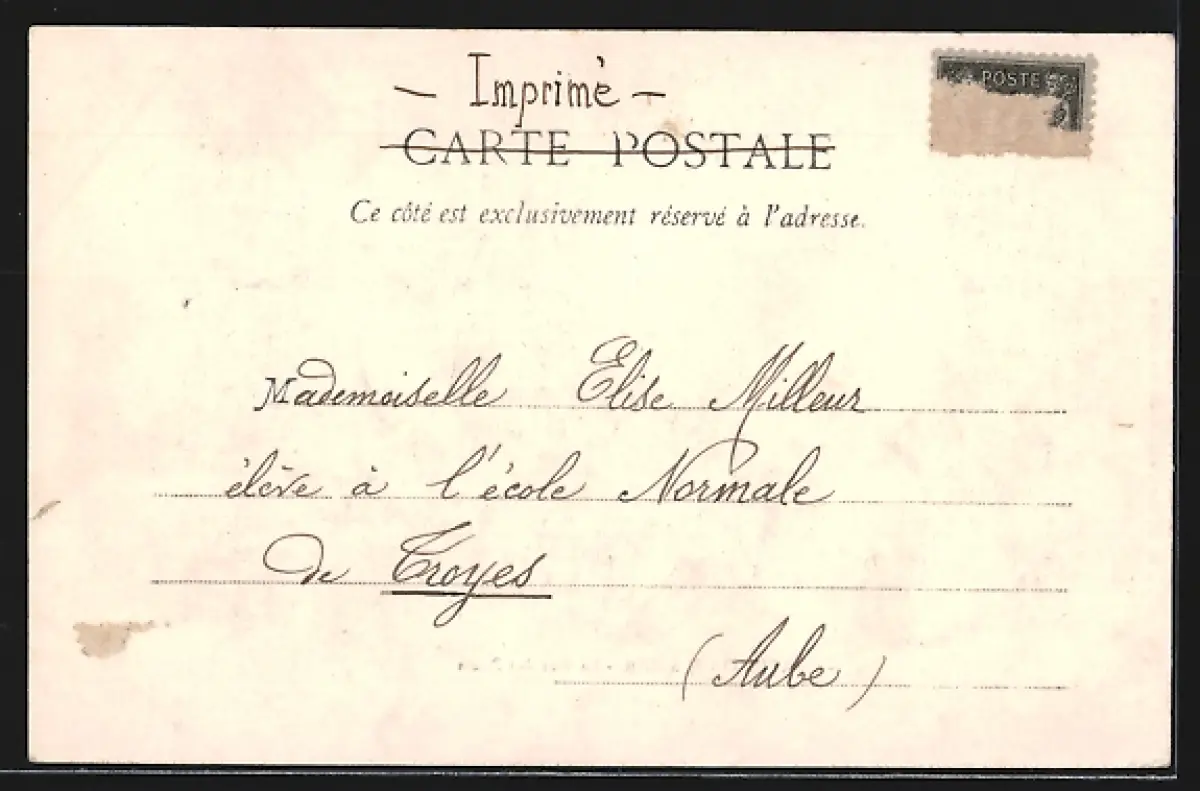 - Imprimè -
POSTE
CARTE POSTALE
Ce côté est exclusivement réservé à l'adresse.
Mademoiselle Elise Milleur
élève à l'école Normale
de Troyes
(Aube)